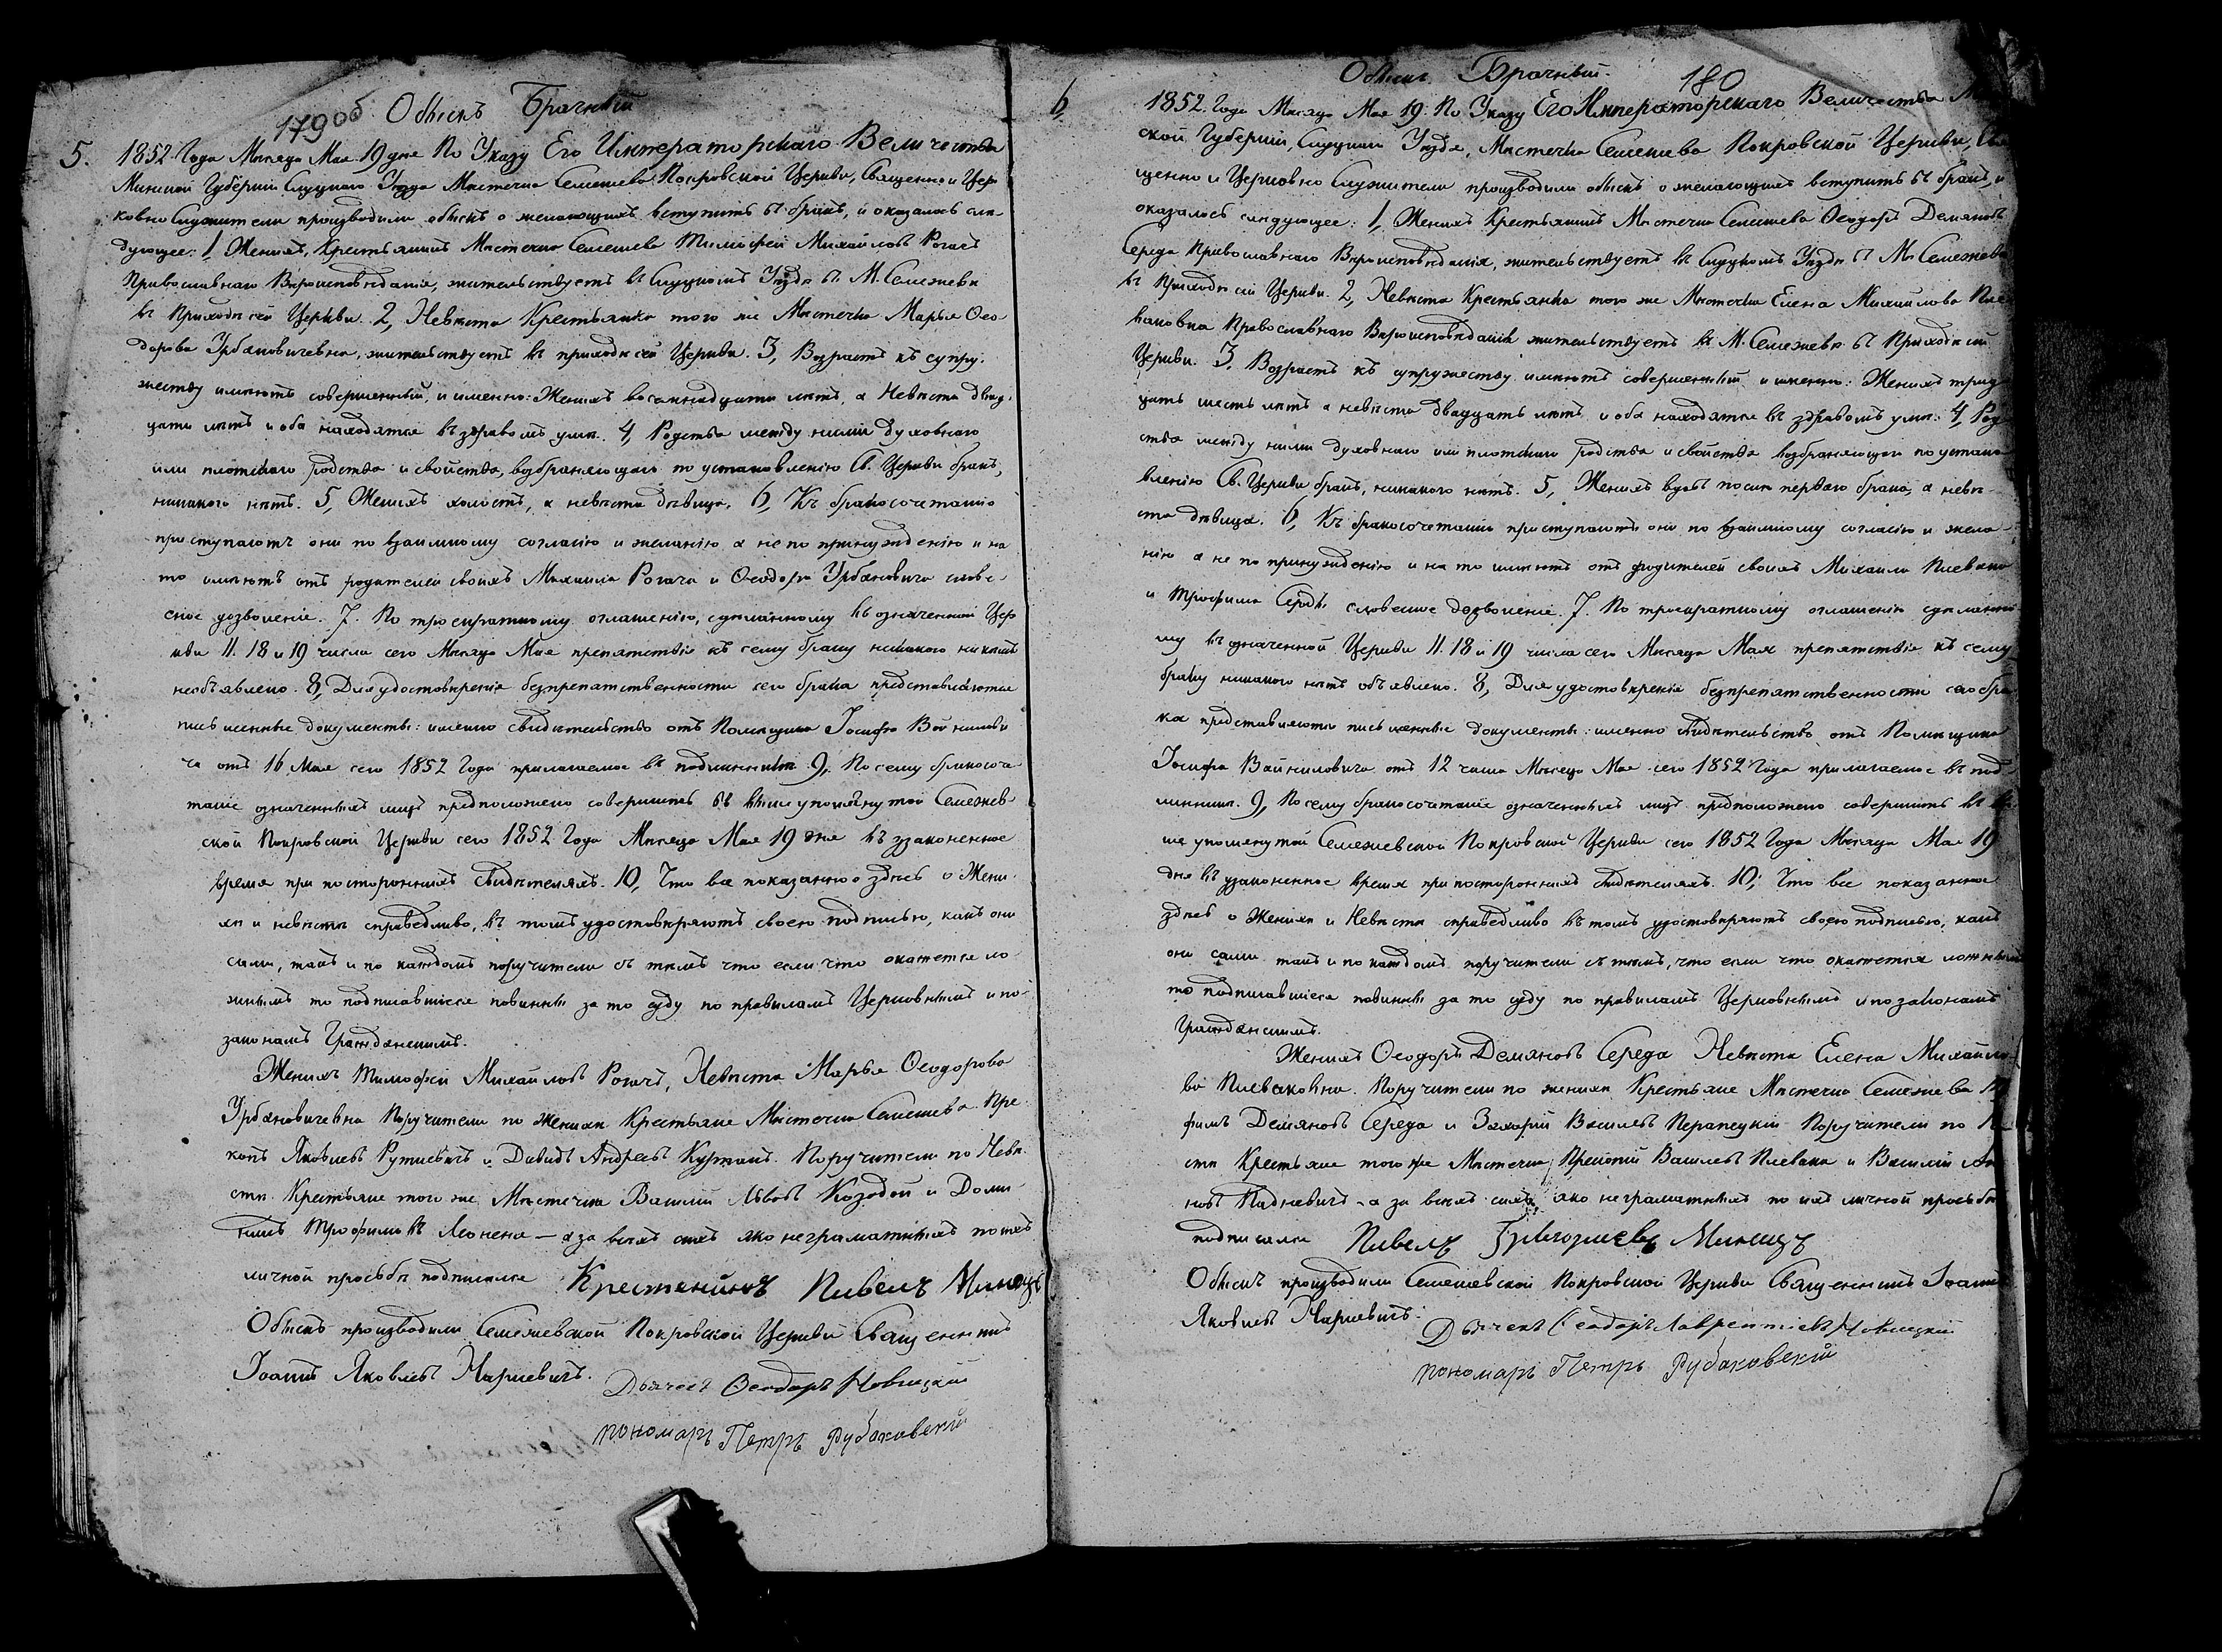 179об Обыскъ Брачный
5. 1852 Года Месяца Мая 19 дня По Указу Его Императорскаго Величества
Минской Губерніи Слуцкаго Уезда Местечка Семежева Покровской Церкви, Священно и Цер
ковно Служители производили обыскъ о желающихъ вступить въ бракъ, и оказалось сле
дующее: 1, Женихъ, Крестьянинъ Местечка Семежева Тимофей Михайловъ Рогачъ
Православнаго Вероисповеданія, жительствуетъ въ Слуцкомъ Уезде въ М. Семежеве
въ Приходе сей Церкви. 2, Невеста Крестьянка того же Местечка Марья Ѳео
дорова Урбановичевна, жительствуетъ въ приходе сей Церкви. 3, Возрастъ къ супру
жеству имеютъ совершенный, и именно: Женихъ восемнадцати летъ, а Невеста двад
цати летъ и оба находятся въ здравомъ уме. 4, Родства между ними духовнаго
или плотскаго родства и свойства, возбраняющаго по установленію Св. Церкви бракъ,
никакого нетъ. 5, Женихъ холостъ, а невеста девица. 6, Къ бракосочетанію
приступаютъ они по взаимному согласію и желанію а не по принужденію и на
то имеютъ отъ родителей своихъ Михаила Рогача и Ѳеодора Урбановича слове
сное дозволеніе. 7. По троекратному оглашенію, сделанному въ означенной Цер
кви 11. 18 и 19 числа сего Месяца Мая препятствія къ сему браку никакого никемъ
необъявлено. 8, Для удостоверенія безпрепятственности сего брака представляются
письменные документы: именно свидетельство отъ Помещика Іосифа Войнилови
ча отъ 16 Мая сего 1852 Года прилагаемое въ подлиннике. 9, По сему бракосоче
таніе означенныхъ лицъ предположено совершить въ выше упомянутой Семежев
ской Покровской Церкви сего 1852 Года Месяца Мая 19 дня въ узаконенное
время при постороннихъ свидетеляхъ. 10, Что все показанное здесь о Жени
хе и невесте справедливо, въ томъ удостоверяютъ своею подписью, какъ они
сами, такъ и по каждомъ поручители съ темъ что если что окажется ло
жнымъ то подписавшіеся повинны за то суду по правиламъ Церковнымъ и по
законамъ Гражданскимъ.
Женихъ Тимофей Михайловъ Рогачъ, Невеста Марья Ѳеодорова
Урбановичевна Поручители по Женихе Крестьяне Местечка Семежева Про
копъ Яковлевъ Руткевичъ и Давидъ Андреевъ Курганъ. Поручители по Неве
сте Крестьяне того же Местечка Василій Львовъ Козодой и Доми
никъ Трофимовъ — а за всехъ сихъ яко неграматныхъ по ихъ
личной прозьбе подписался Крестянинъ Павелъ Минецъ
Обыскъ производили Семежевской Покровской Церкви Священникъ
Іоаннъ Яковлевъ Наркевичъ.
Дьячекъ Ѳеодоръ Новицкій
пономаръ Петръ Рубановскій
Обыскъ Брачный. 180
6 1852 Года Месяца Мая 19. По Указу Его Императорскаго Величества
ской Губерніи, Слуцкаго Уезда, Местечка Семежева Покровской Церкви,
щенно и Церковно Служители производили обыскъ о желающихъ вступить въ бракъ, и
оказалось следующее: 1, Женихъ Крестьянинъ Местечка Семежева Ѳеодоръ Демяновъ
Середа Православнаго Вероисповеданія, жительствуетъ въ Слуцкомъ Уезде въ М. Семежеве
въ Приходе сей Церкви. 2, Невеста Крестьянка того же Местечка Елена Михайлова Пле
ваковна Православнаго Вероисповеданія жительствуетъ въ М. Семежеве въ Приходе сей
Церкви. 3, Возрастъ къ супружеству имеютъ совершенный и именно: Женихъ трид
цать шесть летъ а невеста двадцать летъ и оба находятся въ здравомъ уме. 4, Род
ства между ними духовнаго или плотскаго родства и свойства возбраняющаго по устано
вленію Св. Церкви бракъ, никакого нетъ. 5, Женихъ вдовъ после перваго брака, а неве
ста девица. 6, Къ бракосочетанію приступаютъ они по взаимному согласію и жела
нію а не по принужденію и на то имеютъ отъ родителей своихъ Михаила Плеваки
и Трофима Середы словесное дозволеніе. 7. По троекратному оглашенію сделанно
му въ означенной Церкви 11. 18 и 19 числа сего Месяца Мая препятствія къ сему
браку никакого нетъ объявлено. 8, Для удостоверенія безпрепятственности сего бра
ка представляются письменные документы: именно свидетельство отъ Помещика
Іосифа Войниловича отъ 12 числа Месяца Мая сего 1852 Года прилагаемое въ под
линнике. 9, По сему бракосочетаніе означенныхъ лицъ предположено совершить въ вы
ше упомянутой Семежевской Покровской Церкви сего 1852 Года Месяца Мая 19
дня въ узаконенное время при постороннихъ свидетеляхъ. 10, Что все показанное
здесь о Женихе и Невесте справедливо въ томъ удостоверяютъ своею подписью, какъ
они сами такъ и по каждомъ поручители съ темъ, что если что окажется ложнымъ
то подписавшіеся повинны за то суду по правиламъ Церковнымъ и по законамъ
Гражданскимъ.
Женихъ Ѳеодоръ Демяновъ Середа Невеста Елена Михайло
ва Плеваковна. Поручители по женихе Крестьяне Местечка Семежева
фимъ Демяновъ Середа и Захарій Васильевъ Поручители по
сте Крестьяне того же Местечка Василевъ Плевака и Василій
новъ а за всехъ сихъ яко неграматныхъ по ихъ личной прозьбе
подписался Павелъ Григориевъ Минецъ
Обыскъ производили Семежевской Покровской Церкви Священникъ Іоаннъ
Яковлевъ Наркевичъ.
Дьячекъ Ѳеодоръ Лаврентіевъ Новицкій
пономаръ Петръ Рубановскій